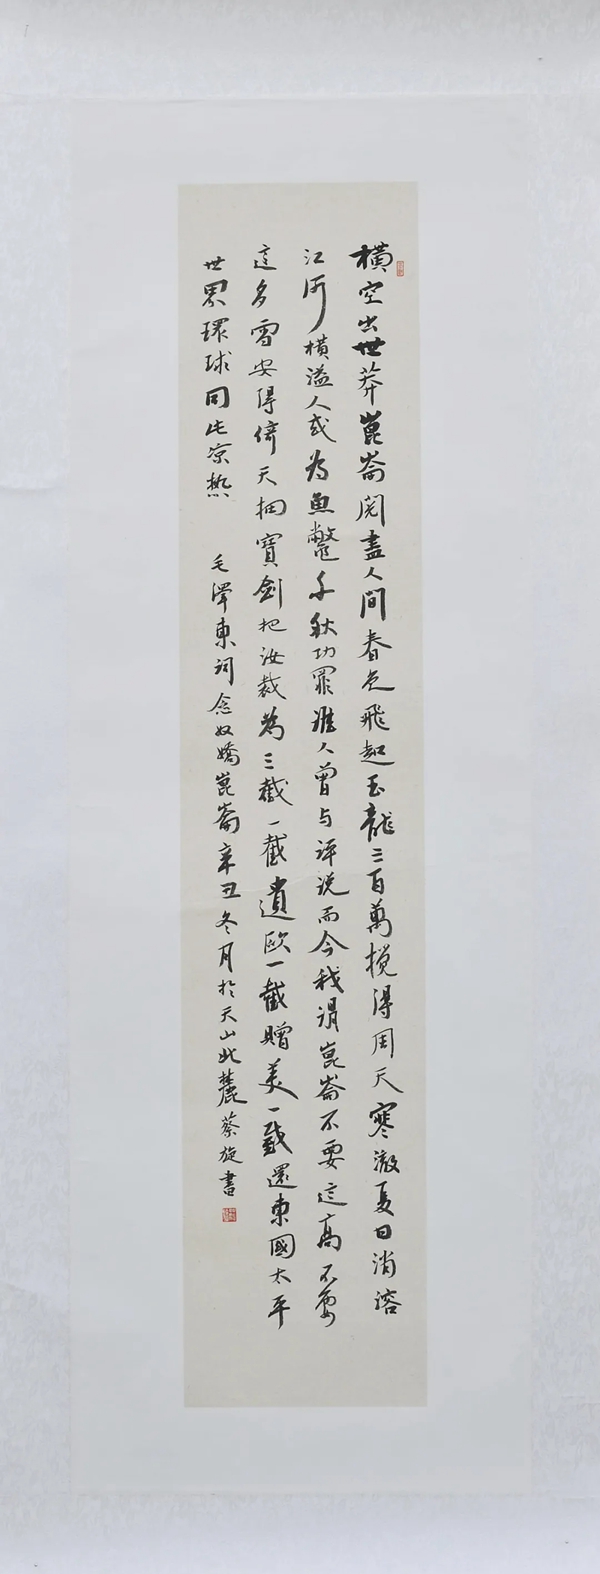 橫空出世莽崑崙閱盡人間春色飛起玉龍三百萬攪得周天寒澈夏日消溶
江河橫溢人或為魚鱉千秋功罪誰人曾与評说而今我謂崑崙不要這高不要
這多雪安得倚天抽寶劍把汝裁為三截一截遺欧一截贈美一截還東國太平
世界環球同此凉熱 毛澤東詞念奴嬌崑崙辛丑冬月於天山北麓蔡旋書